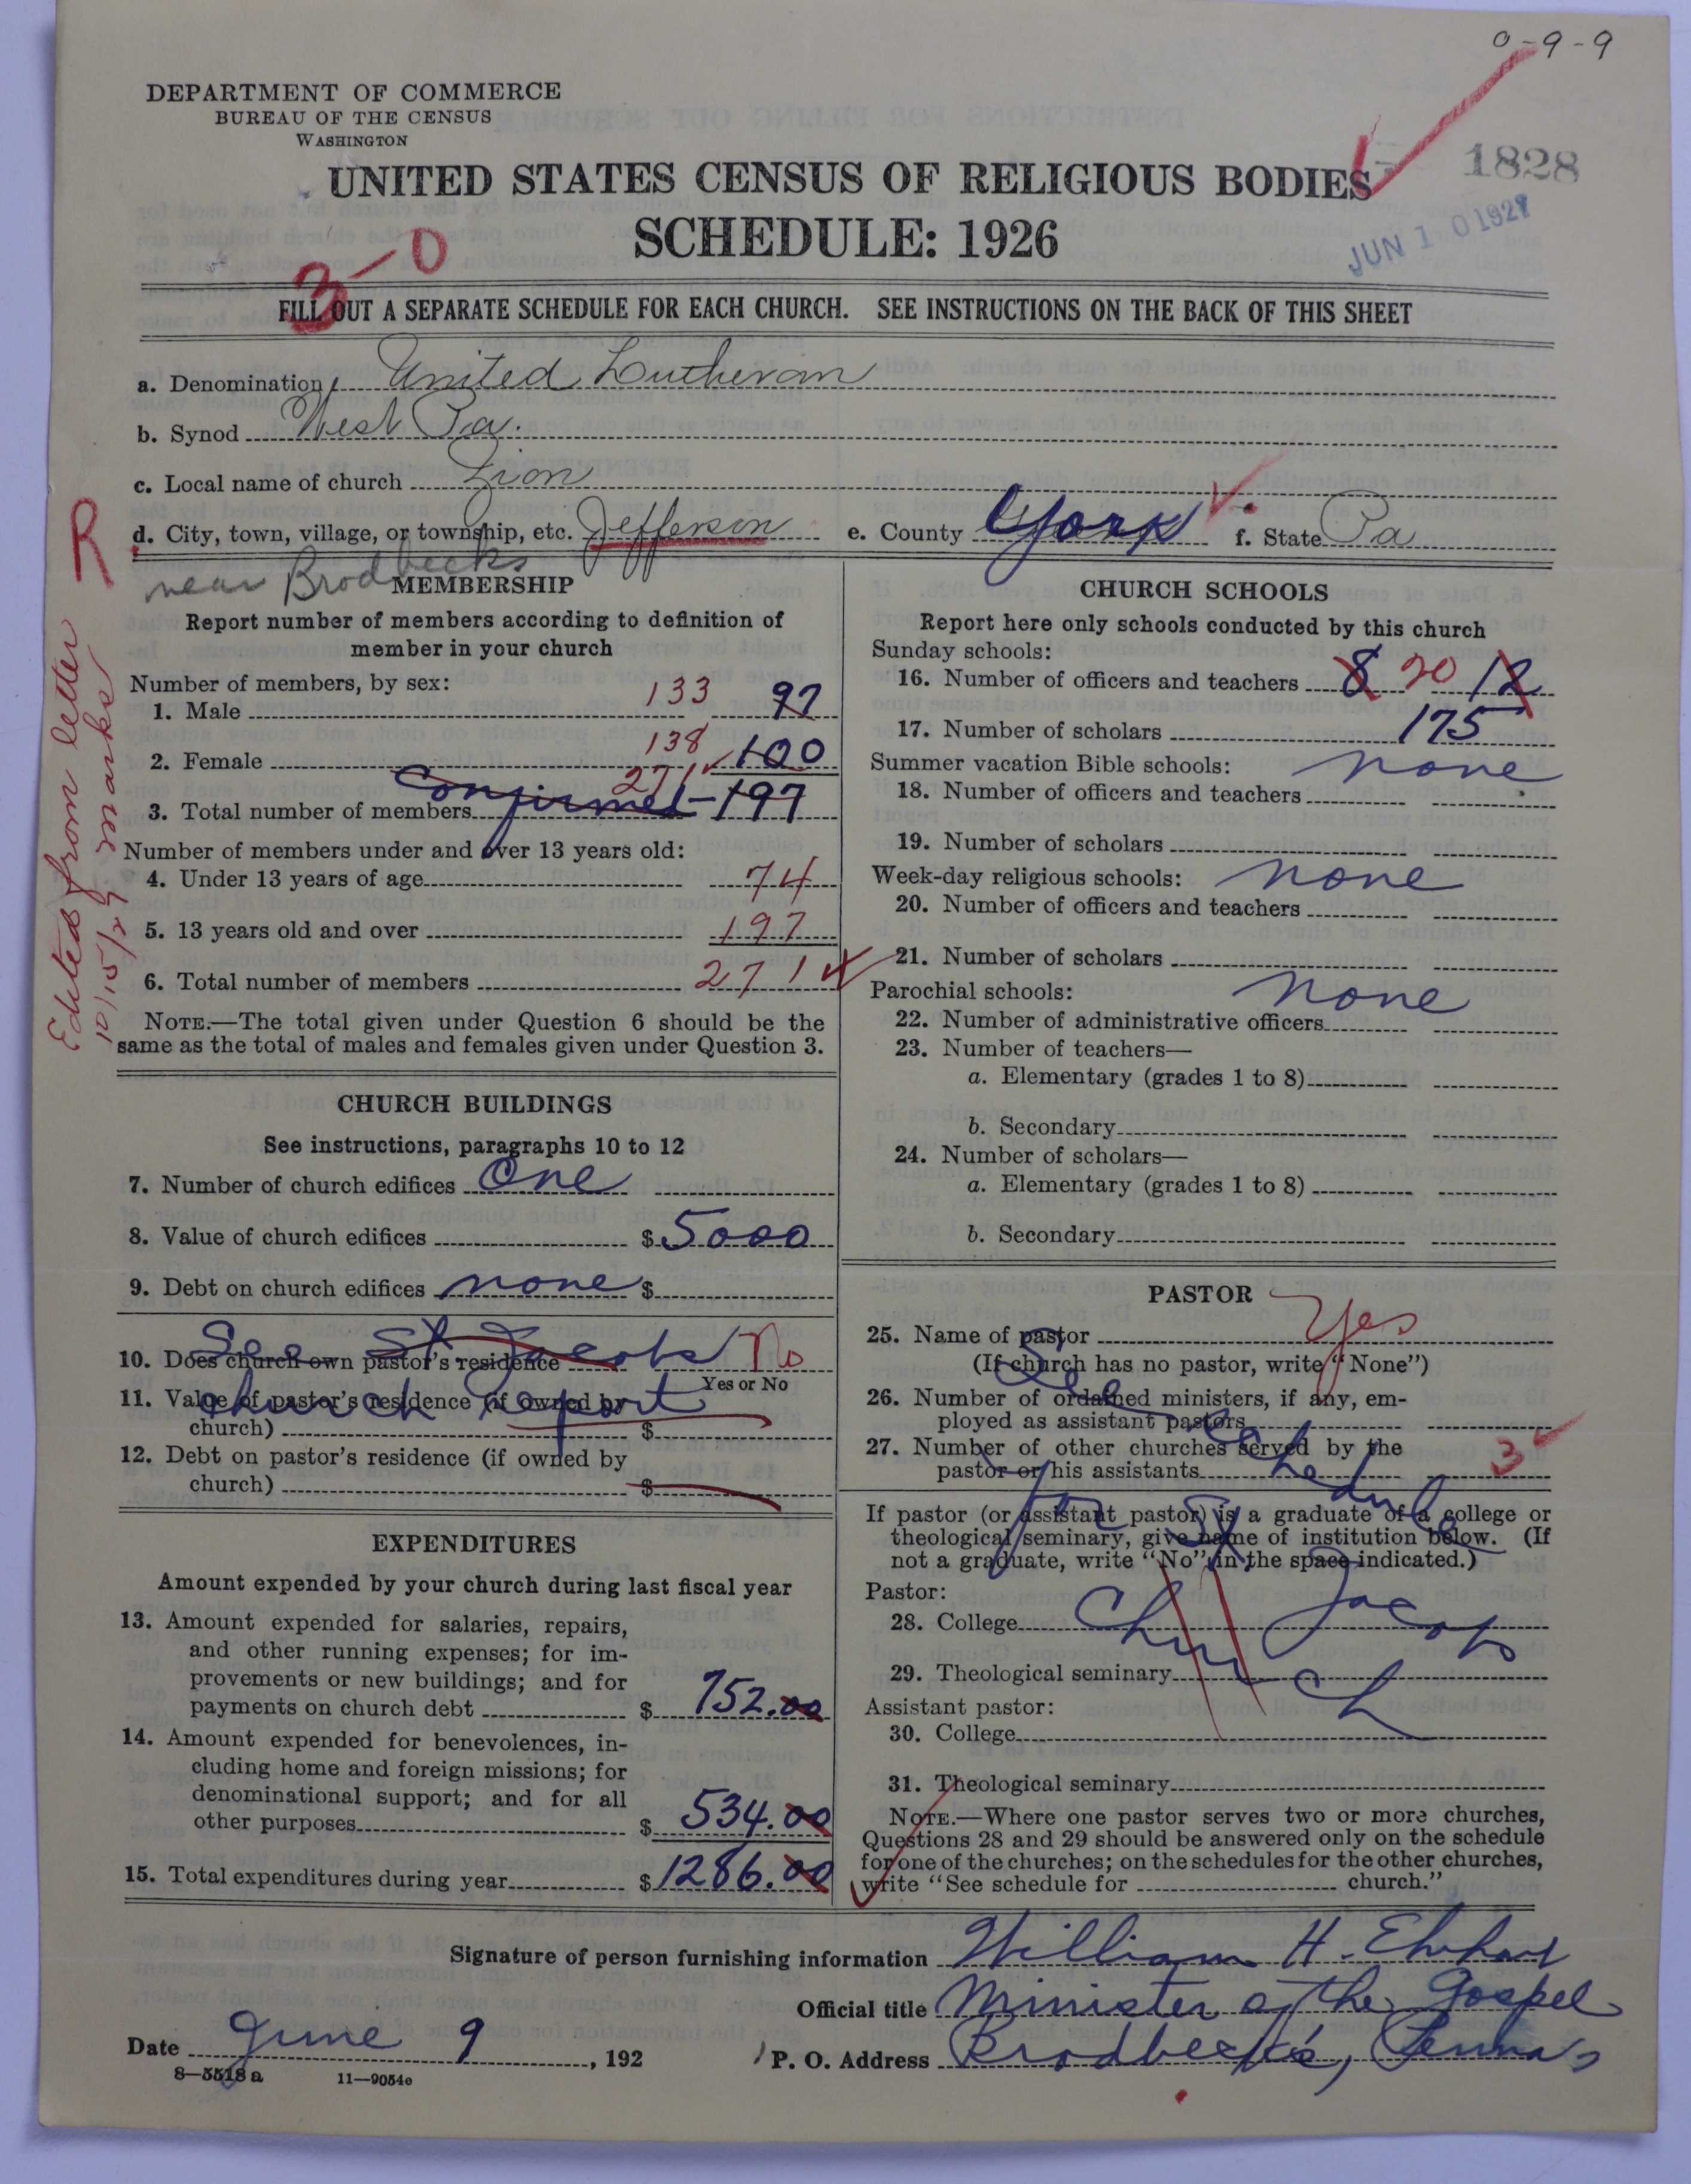 0-9-9
DEPARTMENT OF COMMERCE
BUREAU OF THE CENSUS
WASHINGTON
1828
UNITED STATES CENSUS OF RELIGIOUS BODIES
JUN 10 1927
SCHEDULE: 1926
3-0
FILL OUT A SEPARATE SCHEDULE FOR EACH CHURCH. SEE INSTRUCTIONS ON THE BACK OF THIS SHEET
a. Denomination United Lutheran
b. Synod West Pa.
c. Local name of church Zion
d. City, town, village, or township, etc. Jefferson e. County York f. State Pa
near Brodbecks
R
Edited from letter
10/15/27 marks
MEMBERSHIP
Report number of members according to definition of
member in your church
Number of members, by sex:
1. Male 133 97
2. Female 138 100
3. Total number of members Confirmed- 271 197
Number of members under and over 13 years old:
4. Under 13 years of age 74
5. 13 years old and over 197
6. Total number of members 271
NOTE.—The total given under Question 6 should be the
same as the total of males and females given under Question 3.
CHURCH BUILDINGS
See instructions, paragraphs 10 to 12
7. Number of church edifices One
8. Value of church edifices $ 5000
9. Debt on church edifices none $
10. Does church own pastor's residence No
Yes or No
See St Jacobs
church report
11. Value of pastor's residence (if owned by
church) $
12. Debt on pastor's residence (if owned by
church) $
EXPENDITURES
Amount expended by your church during last fiscal year
13. Amount expended for salaries, repairs,
and other running expenses; for im-
provements or new buildings; and for
payments on church debt $ 752.00
14. Amount expended for benevolences, in-
cluding home and foreign missions; for
denominational support; and for all
other purposes $ 534.00
15. Total expenditures during year $ 1286.00
CHURCH SCHOOLS
Report here only schools conducted by this church
Sunday schools:
16. Number of officers and teachers 8 20 12
17. Number of scholars 175
Summer vacation Bible schools: none
18. Number of officers and teachers
19. Number of scholars
Week-day religious schools: none
20. Number of officers and teachers
21. Number of scholars
Parochial schools: none
22. Number of administrative officers
23. Number of teachers—
a. Elementary (grades 1 to 8)
b. Secondary
24. Number of scholars—
a. Elementary (grades 1 to 8)
b. Secondary
PASTOR
25. Name of pastor Yes
(If church has no pastor, write "None")
26. Number of ordained ministers, if any, em-
ployed as assistant pastors
27. Number of other churches served by the
pastor or his assistants 3
See
Schedule
for St
Jacobs
Church
If pastor (or assistant pastor) is a graduate of a college or
theological seminary, give name of institution below. (If
not a graduate, write "No" in the space indicated.)
Pastor:
28. College
29. Theological seminary
Assistant pastor:
30. College
31. Theological seminary
NOTE.—Where one pastor serves two or more churches,
Questions 28 and 29 should be answered only on the schedule
for one of the churches; on the schedules for the other churches,
write "See schedule for church."
Signature of person furnishing information William H. Ehrhart
Official title Minister of the Gospel
Date June 9, 192 P. O. Address Brodbeck's, Penna
8-5518 a 11-9054e